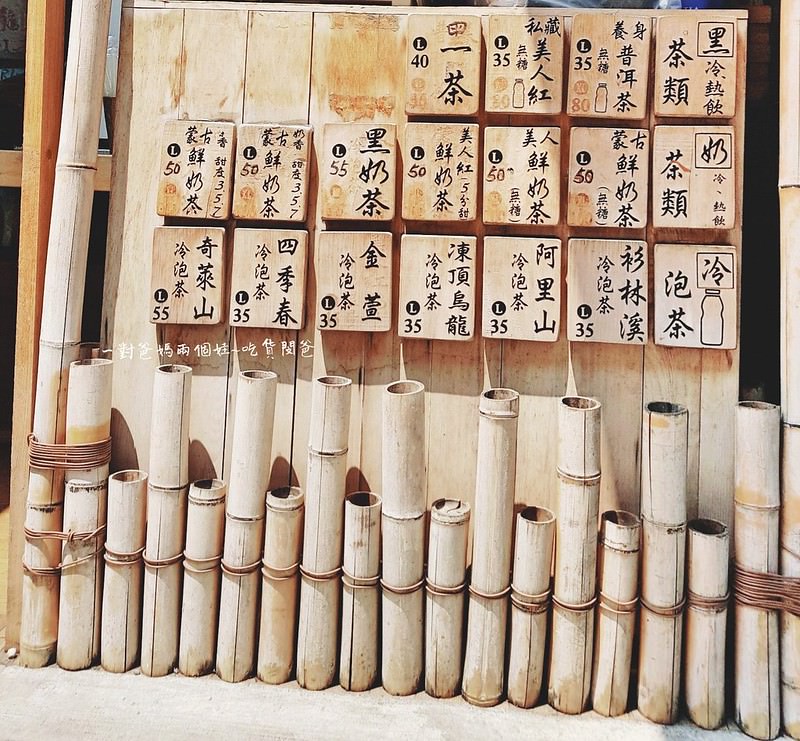 黑
茶類
冷、熱飲
養身
普洱茶
無糖
L
35
80
私藏
美人紅
無糖
L
35
茶
L
40
奶
茶類
冷、熱飲
蒙古
鮮奶茶
(無糖)
L
50
美人
鮮奶茶
(無糖)
L
50
美人紅
鮮奶茶
(5分甜)
L
50
黑奶茶
L
55
奶香 甜度3.5.7
蒙古
鮮奶茶
L
50
香 甜度3.5.7
蒙古
鮮奶茶
L
50
冷
泡茶
杉林溪
冷泡茶
L
35
阿里山
冷泡茶
L
55
凍頂烏龍
冷泡茶
L
35
金萱
冷泡茶
L
35
四季春
冷泡茶
L
35
奇萊山
冷泡茶
L
55
一對爸媽兩個娃~吃貨閔爸